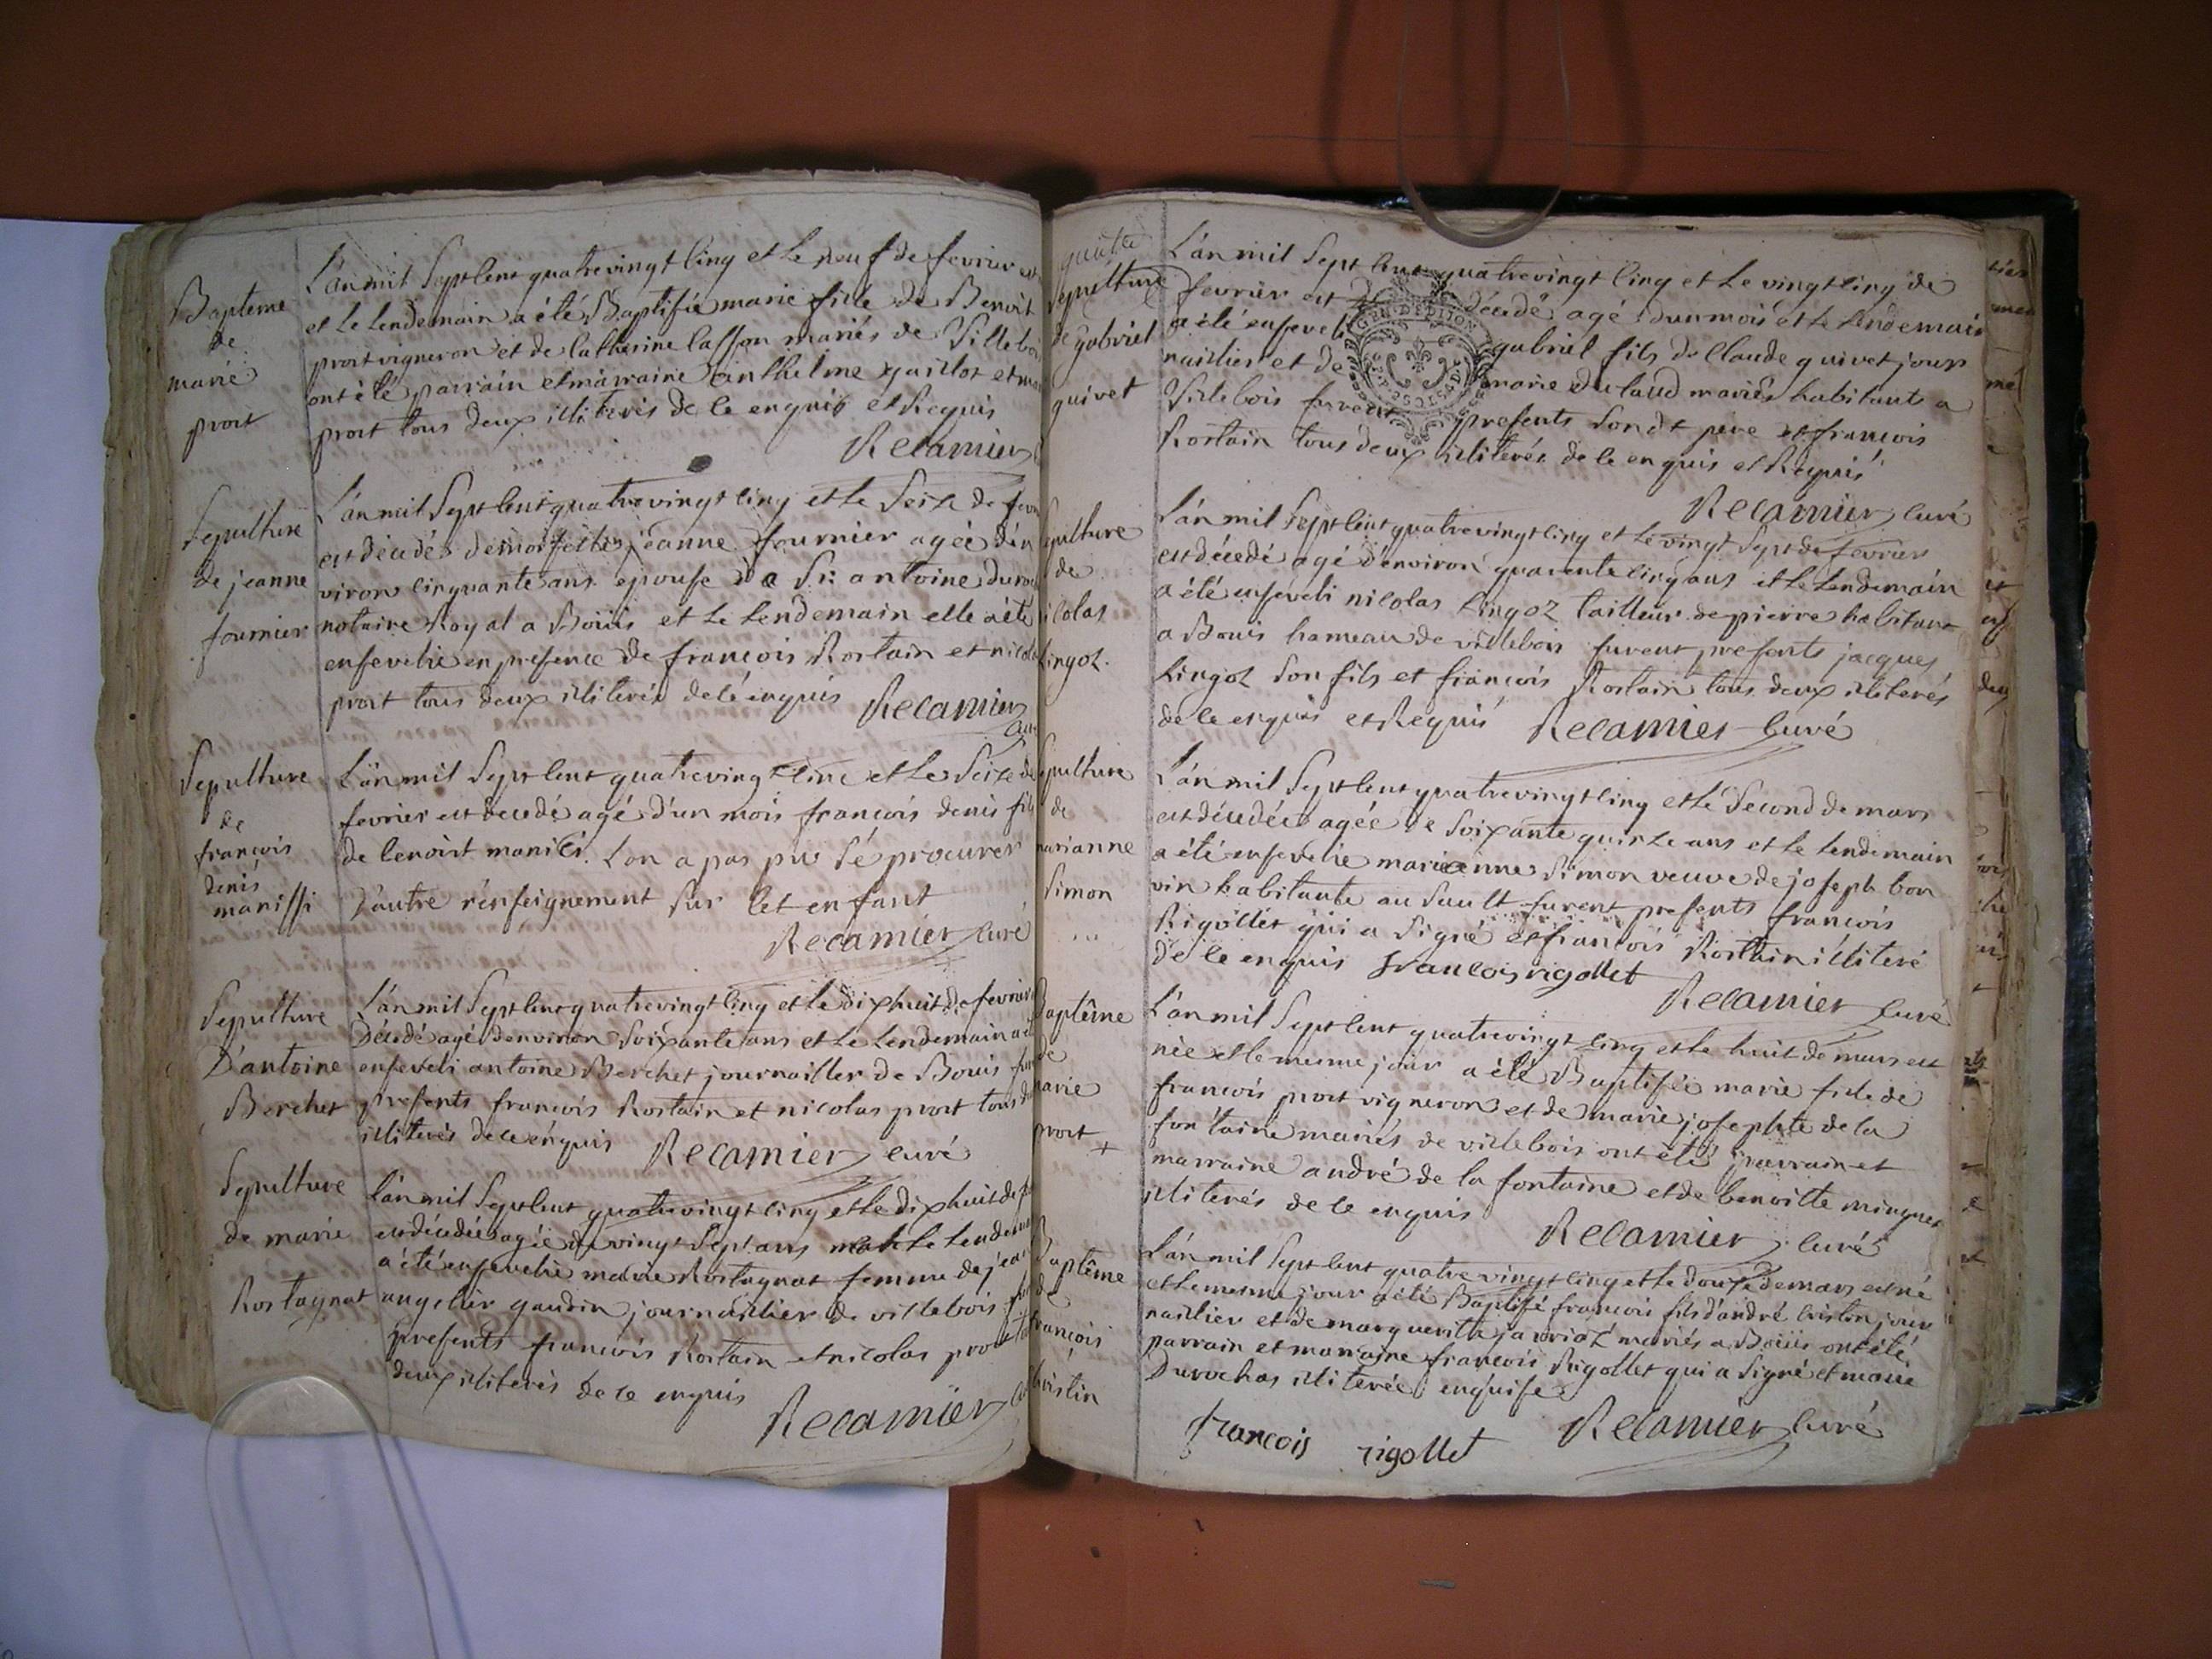 Bapteme
de
marie
prost
L'an mil sept cent quatrevingt cinq et le neuf de fevrier est
et le lendemain a été Baptisée marie fille de Benoit
prost vigneron et de catherine lasson mariés de Villebois
ont été parrain et marraine anthelme et
prost tous deux illiterés de ce enquis et Requis
Recamier
Sepulture
de jeanne
fournier
L'an mil sept cent quatrevingt cinq et le seize de
est décédée demoiselle jeanne fournier agée d'en
viron cinquante ans epouse a Sr antoine
notaire Royal a Boüis et le lendemain elle a été
ensevelie en presence de françois Rostain et nicolas
prost tous deux illiterés de ce enquis Recamier
Sepulture
de
françois
denis
manissi
L'an mil sept cent quatrevingt cinq et le seize de
fevrier est decedé agé d'un mois françois denis fils
de benoist manici. L'on a pas pu se procurer
d'autre renseignement sur cet enfant
Recamier curé
Sepulture
D'antoine
Berchet
L'an mil sept cent quatrevingt cinq et le dixhuit de fevrier
décédé agé d'environ soixante ans et le lendemain a
enseveli antoine Berchet journailler de Bouis
presents françois Rostain et nicolas prost tous
illiterés de ce enquis Recamier curé
Sepulture
de marie
Rostagnat
L'an mil sept cent quatrevingt cinq et le dixhuit de
est décédée agée de vingt sept ans et le
a été ensevelie marie Rostagnat femme de
angelier gaudin journaillier de villebois
presents françois Rostain et nicolas prost
deux illiterés de ce enquis
Recamier
Sepulture
de gabriel
quivet
L'an mil sept cent quatrevingt cinq et le vingt cinq de
fevrier est décédé agé d'un mois et le lendemain
a été enseveli gabriel fils de Claude quivet jour
naillier et de marie dulaud mariés habitants a
Villebois furent presents son dt pere et françois
Rostain tous deux illiterés de ce enquis et Requis
GEN. DE DIJON
Recamier curé
epulture
de
icolas
Lingoz.
L'an mil sept cent quatrevingt cinq et le vingt sept de fevrier
est décedé agé d'environ quarente cinq ans et le lendemain
a été enseveli nicolas Lingoz tailleur de pierre habitant
a Bouis hameau de villebois furent presents jacques
Lingoz son fils et françois Rostain tous deux illiterés
de ce enquis et Requis Recamier curé
epulture
de
marianne
Simon
L'an mil sept cent quatrevingt cinq et le second de mars
est décédée agée de soixante quinze ans et le lendemain
a été ensevelie marieanne Simon veuve de joseph bon
vin habitante au Sault furent presents françois
Rigollet qui a signé et françois Rostain illiteré
de ce enquis francois rigollet
Recamier curé
Baptême
de
marie
prost
+
L'an mil sept cent quatrevingt cinq et le huit de mars est
née et le meme jour a été Baptisée marie fille de
françois prost vigneron et de marie josephte de la
fontaine mariés de villebois ont été parrain et
marraine andré de la fontaine et de benoitte minguet
illiterés de ce enquis
Recamier curé
Baptême
de
françois
L'an mil sept cent quatre vingt cinq et le douze de mars est né
et le meme jour a été Baptisé françois fils d'andré jour
naillier et de marguerite mariés a Boüis ont été
parrain et marraine françois Rigollet qui a signé et marie
Durochas illiterée enquise
francois rigollet Recamier curé